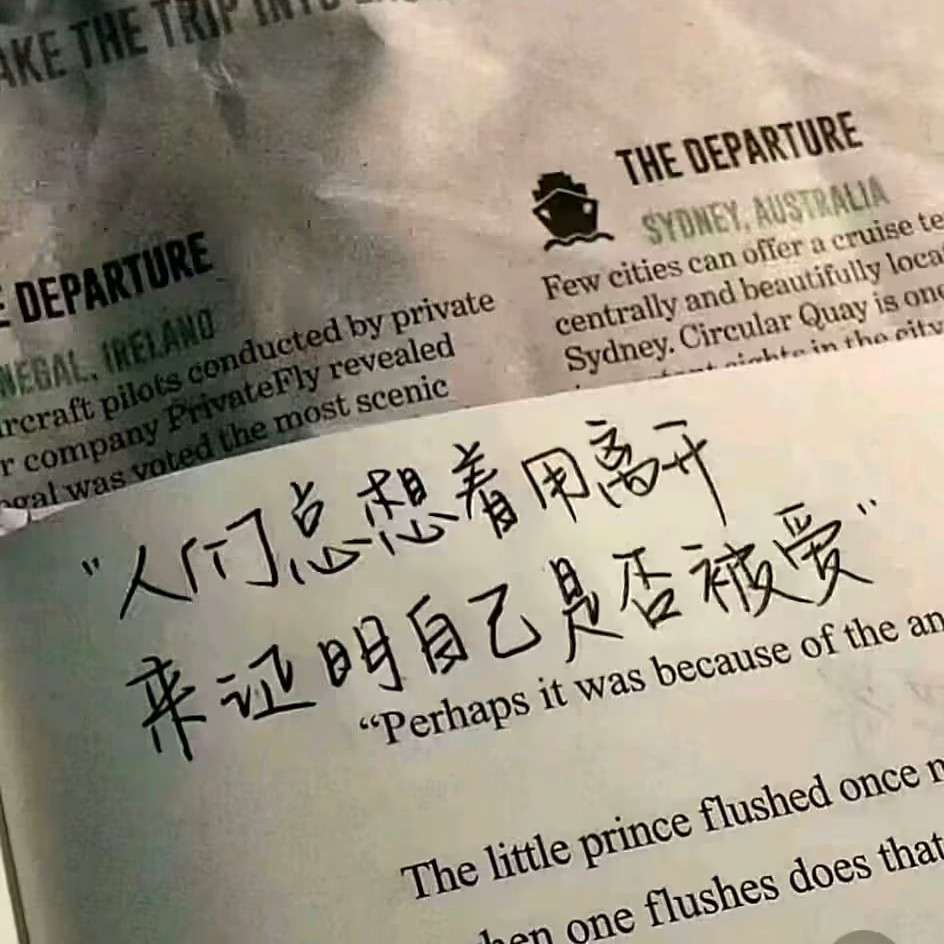 TAKE THE TRIP INTO
THE DEPARTURE
SYDNEY, AUSTRALIA
Few cities can offer a cruise
centrally and beautifully
Sydney. Circular Quay is
in the city
DEPARTURE
IRELAND
pilots conducted by private
company PrivateFly revealed
was voted the most scenic
"人们总想着用离开
来证明自己是否被爱"
“Perhaps it was because of the
The little prince flushed once
one flushes does that